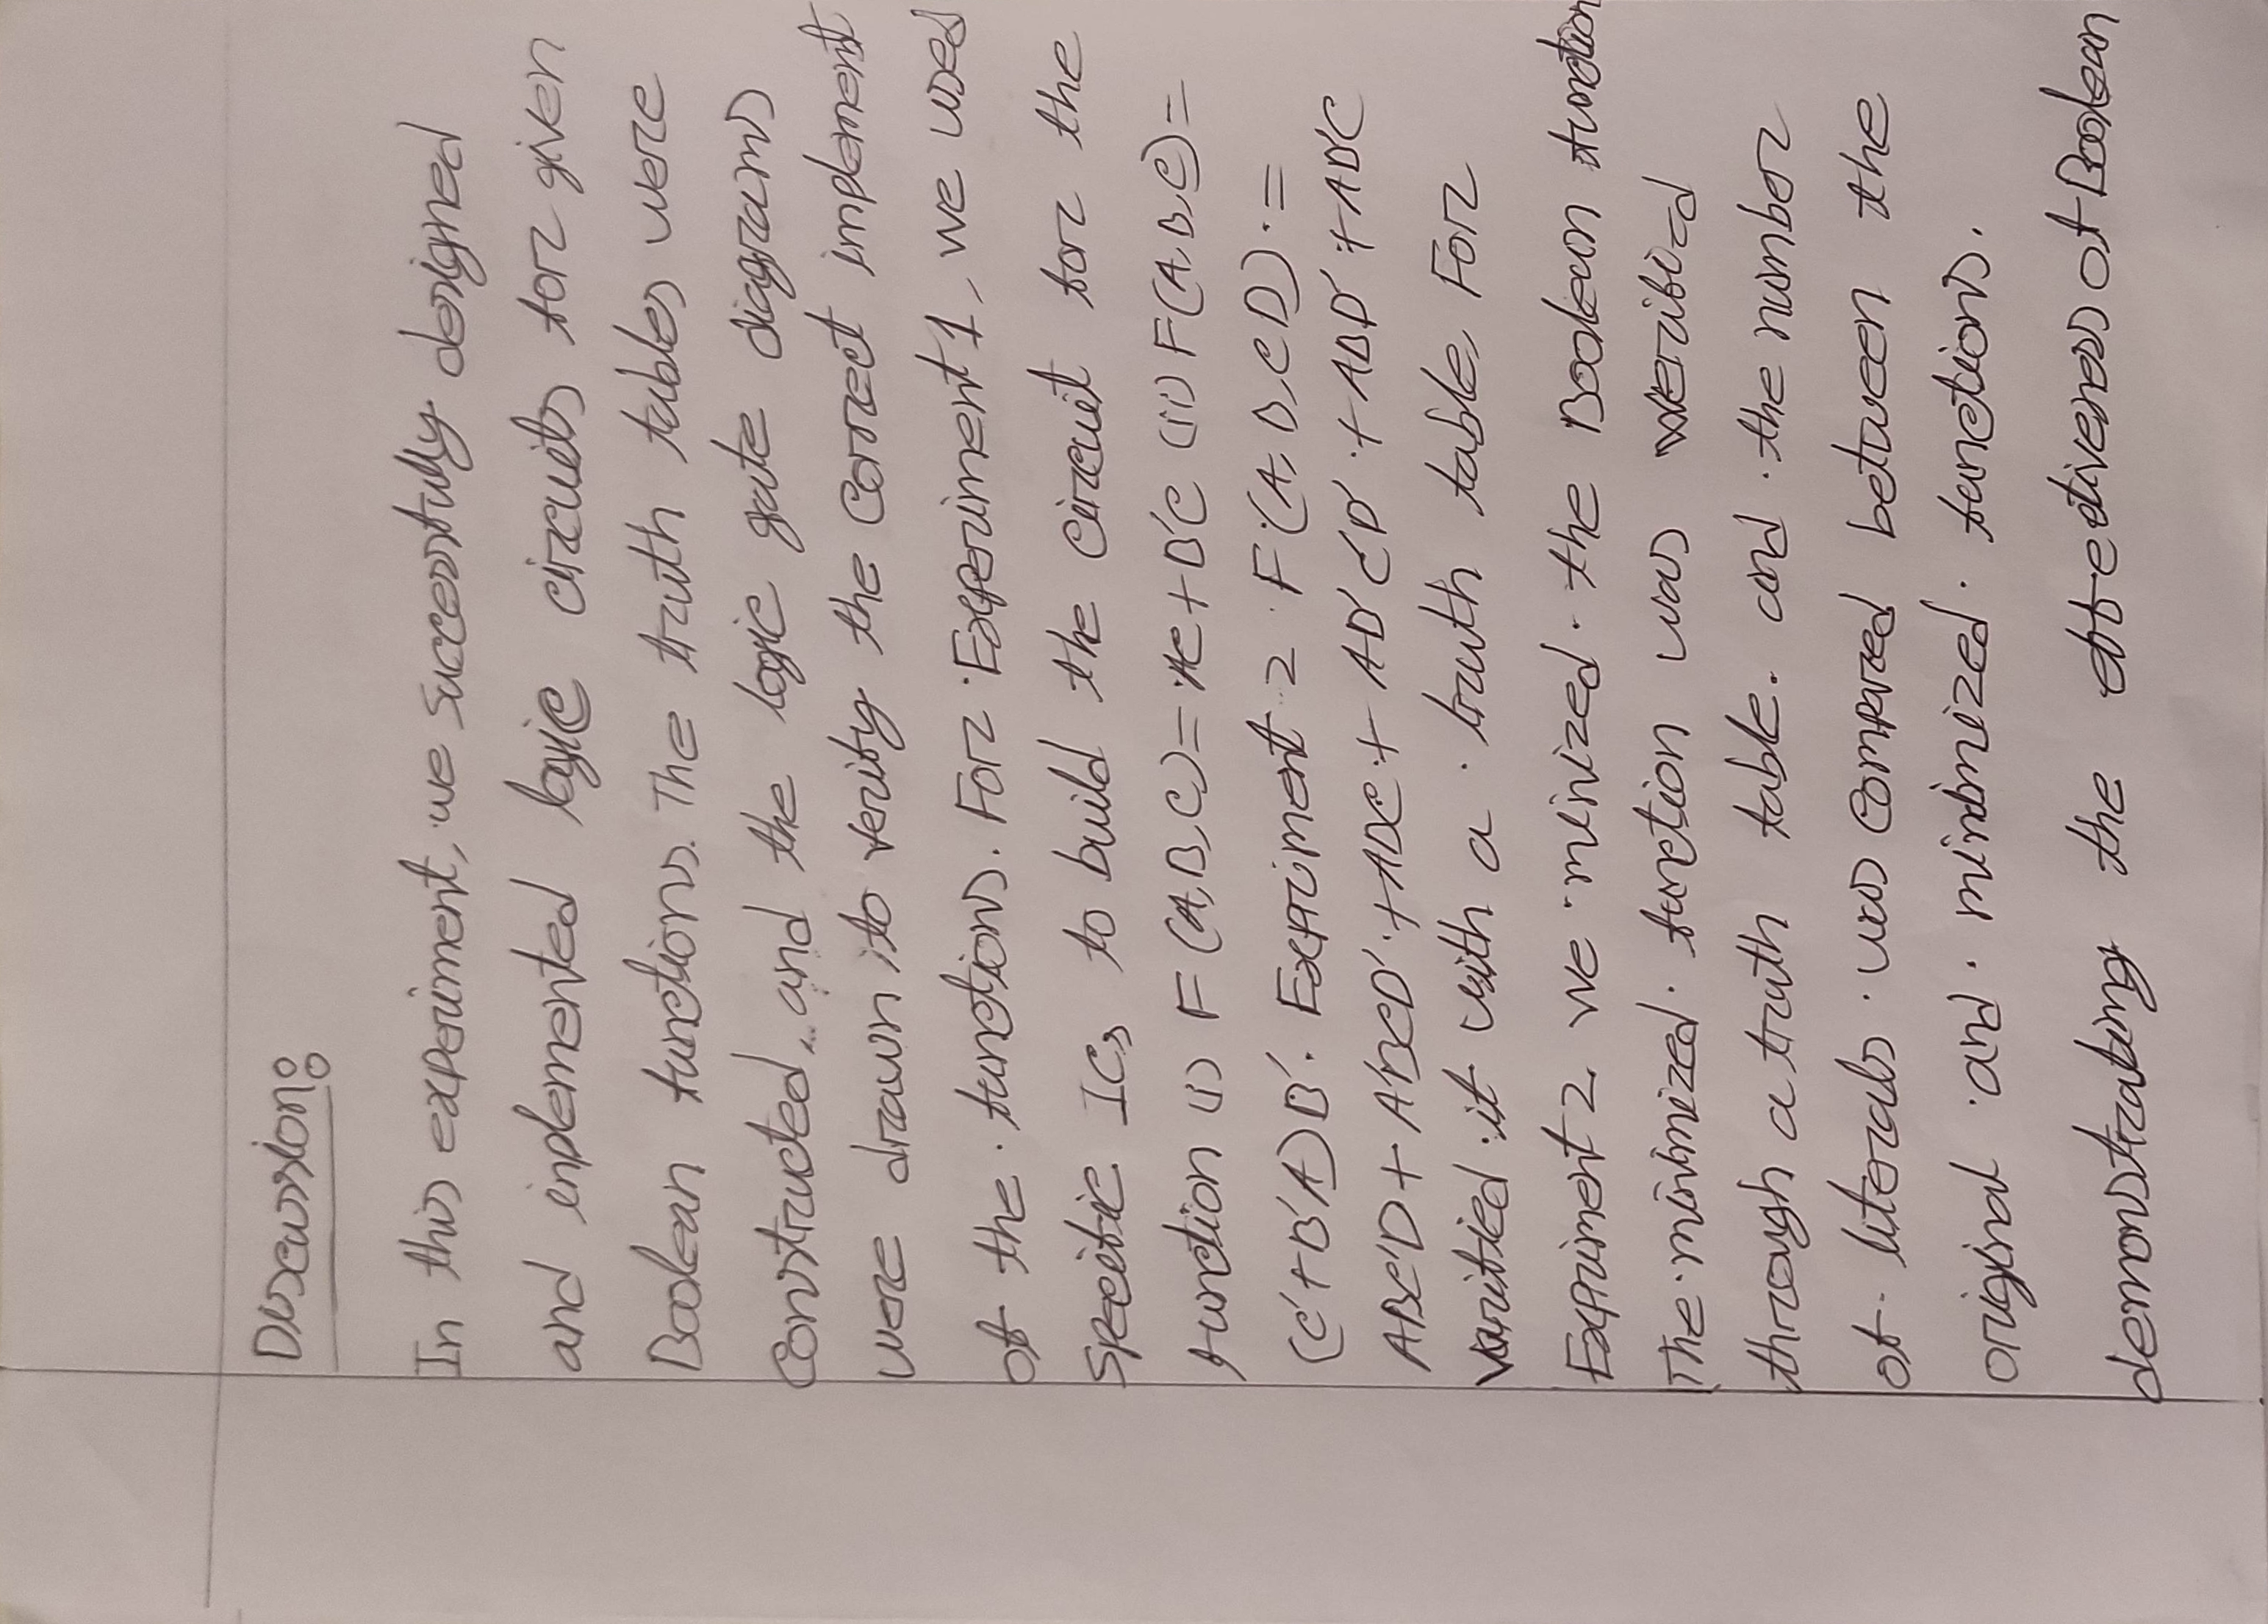 Discussion:
In this experiment, we successfully designed
and inplemented logic circuits for given
Boolean functions. The truth tables were
constructed, and the logic gate diagrams
were drawn to verify the correct implement
of the functions. For Experiment 1, we used
specific ICs to build the circuit for the
function (i) F (A,B,C)= AC+B'C (ii) F(A,B,C)=
(C'+B'A)B'. Expriment 2 F(A,B,CD) =
ABC'D + A'BCD' + ABC + AB'C'D' + ABD' + AB'C
varified it with a truth table, For
Expriment 2 we minized the Boolean function
The minimized function was verified
through a truth table. and the number
of literals was compared between the
original and minimized functions.
demonstrating the effectiveness of Boolean